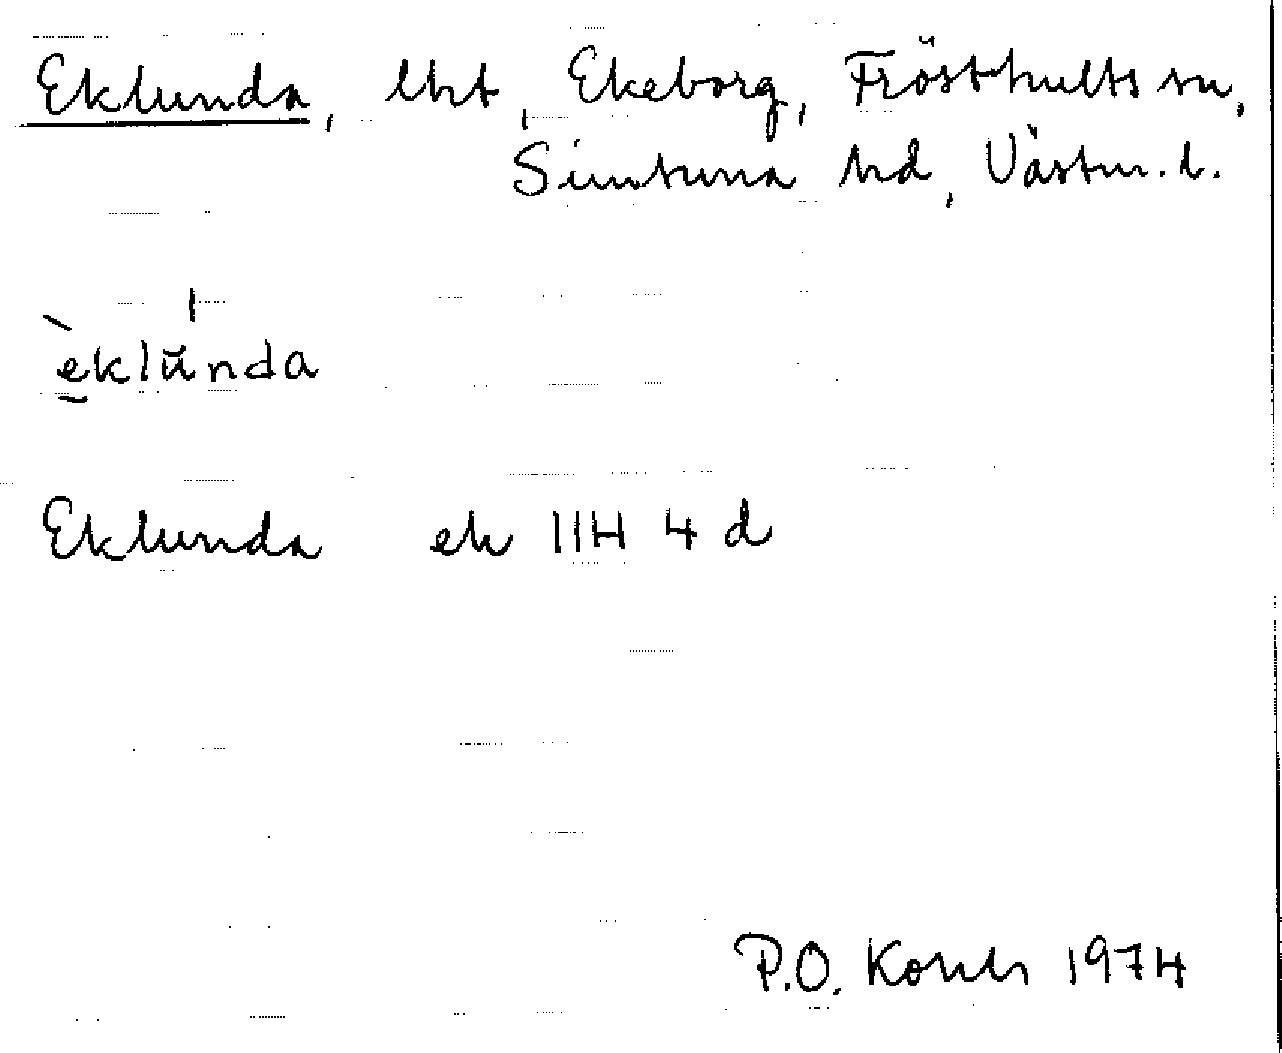 Eklunda, lht, Ekeborg, Frösthults sn,
Simtuna hd, Västm. l.
èklŭnda
Eklunda ek 11H 4 d
P.O. 1974